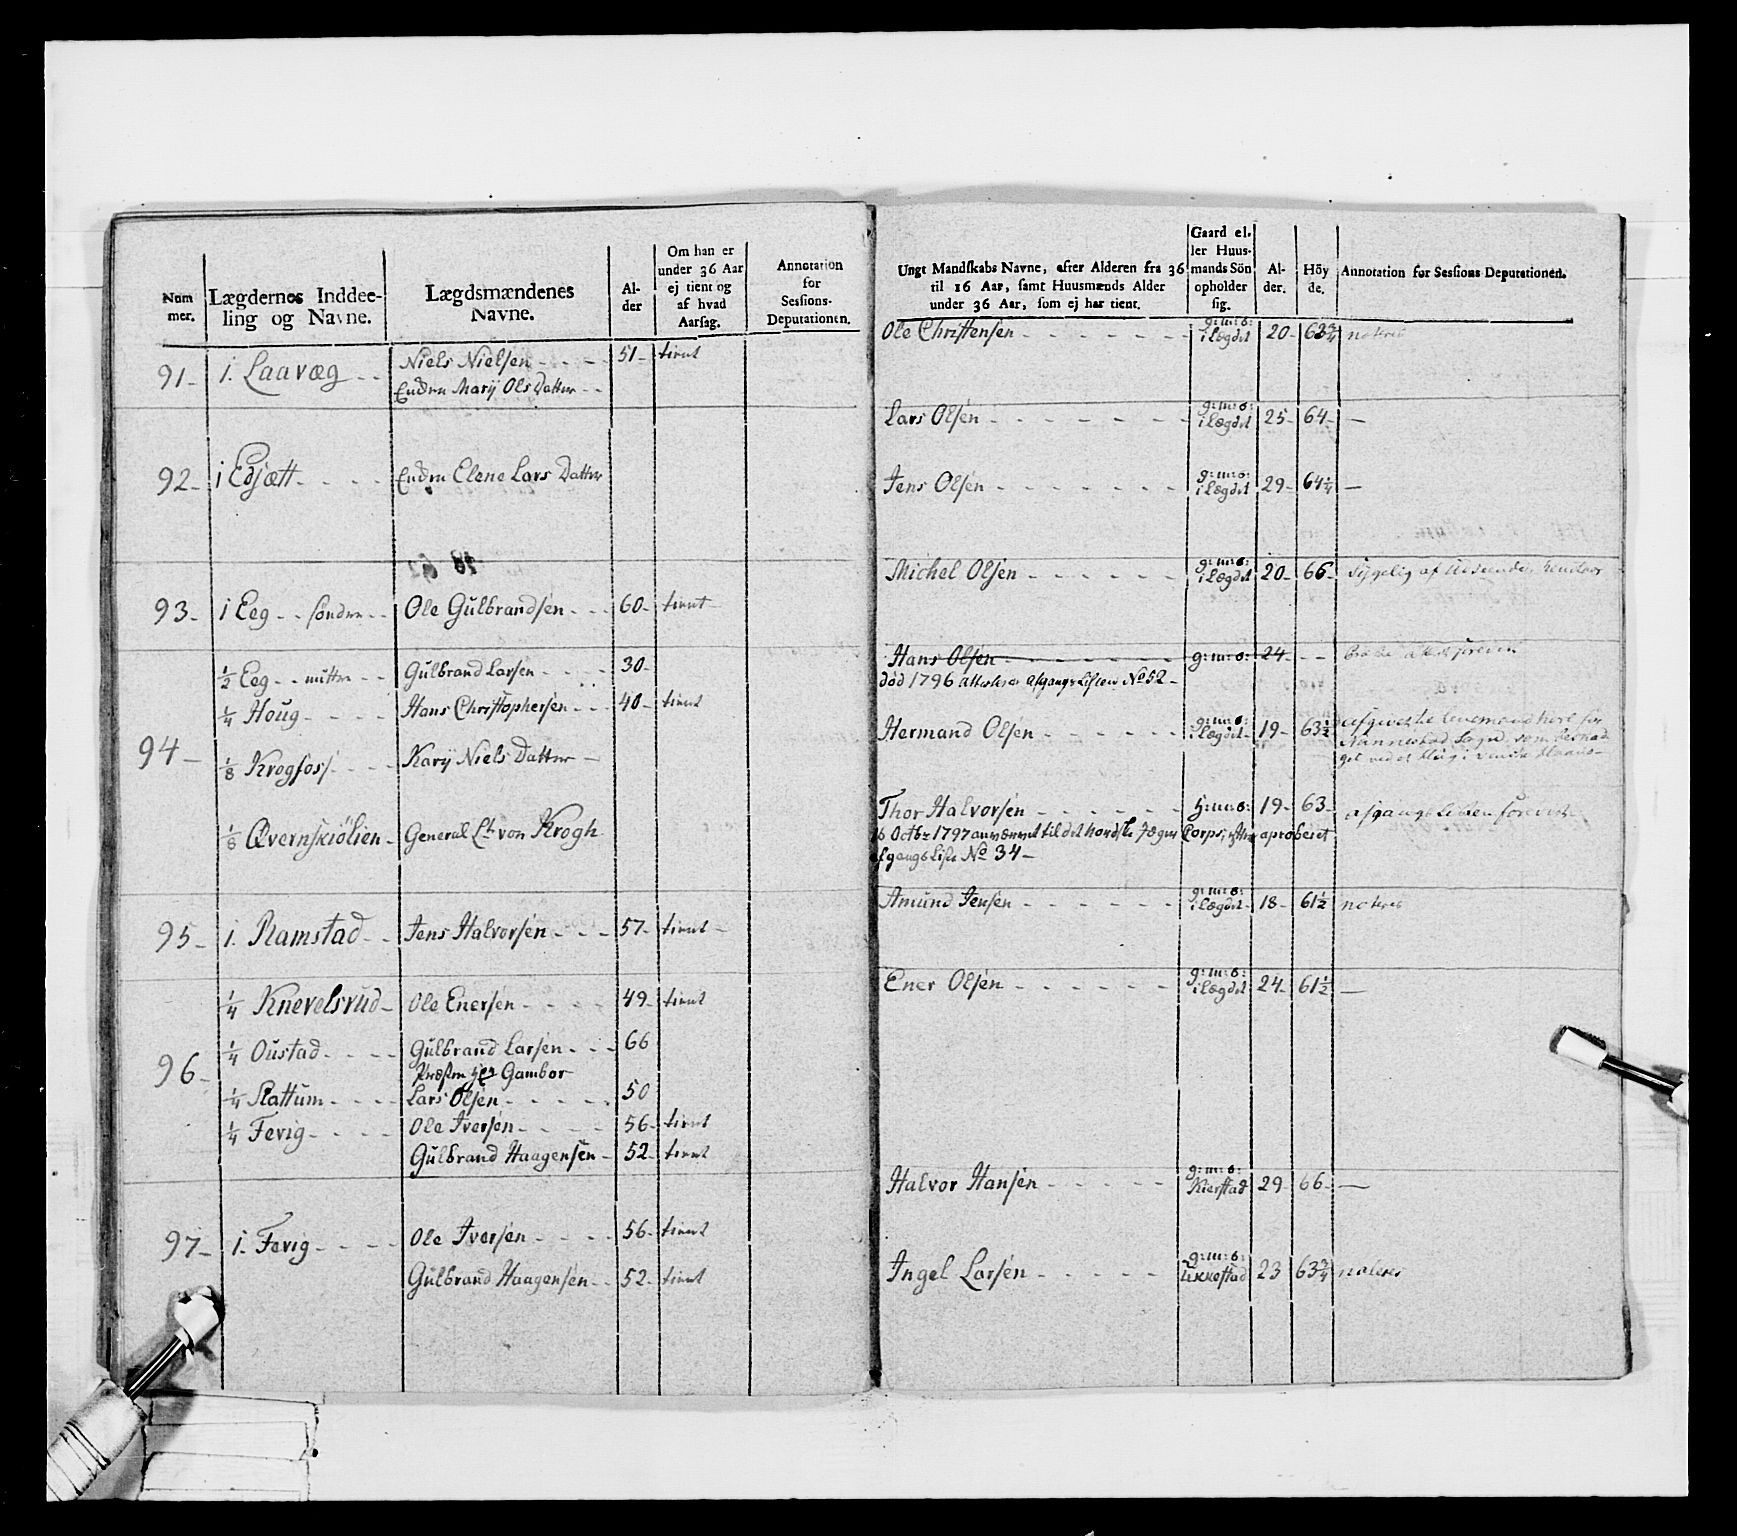 Num mer.
Lægdernes Inddee- ling og Navne.
Lægdsmændenes Navne.
Al- der
Om han er under 36 Aar ej tient og af hvad Aarsag.
Annotation for Sessions- Deputationen.
91 1. Laavæg Niels Nielsen 51 tient
Enchen Marÿ Ols Datter
92 1 Edsætt Enchen Elene Lars Datter
93 1 Eeg søndre Ole Gulbrandsen 60 tient
94
1/2 Eeg mittre Gulbrand Larsen 30
1/4 Houg Hans Christophersen 40 tient
1/8 Krogfoss Karÿ Niels Datter
1/8 Qvernskiølien General Lt: von Krogh
95 1. Ramstad Jens Halvorsen 57 tient
96
1/4 Knevelsrud Ole Enersen 49 tient
1/4 Oustad Gulbrand Larsen 66
Præsten Gambor
1/4 Slattum Lars Olsen 50
1/4 Fevig Ole Iversen 56 tient
Gulbrand Haagensen 52 tient
97 1. Fevig Ole Iversen 56 tient
Gulbrand Haagensen 52 tient
Ungt Mandskabs Navne, efter Alderen fra 36 til 16 Aar, samt Huusmænds Alder under 36 Aar, som ej har tient.
Gaard el- ler Huus- mands Sön opholder sig.
Al- der.
Höy de.
Annotation for Sessions Deputationen.
Ole Christensen g: m: s: i Lægdet 20 63 3/4 noteres
Lars Olsen g: m: s: i Lægdet 25 64 —
Jens Olsen g: m: s: i Lægdet 29 64 1/4 —
Michel Olsen g: m: s: i Lægdet 20 66 Sygelig af
Hans Olsen g: m: s: 24
død 1796 attesterer afgangs Listen No 52
Hermand Olsen g: m: s: i Lægdet 19 63 1/2
Nannestad Sogn, som
Thor Halvorsen h: m: s: 19 63 afgangs Listen foreviist
16 Octbr 1797 anvævret til det Nordske Jæger Corps, efter aproberet
afgangs Liste No 34
Amund Jensen g: m: s: i Lægdet 18 61 1/2 noteres
Ener Olsen g: m: s: i Lægdet 24 61 1/2 —
Halvor Hansen g: m: s: Kierstad 29 66 —
Ingel Larsen g: m: s: Ukkestad 23 63 3/4 noteres